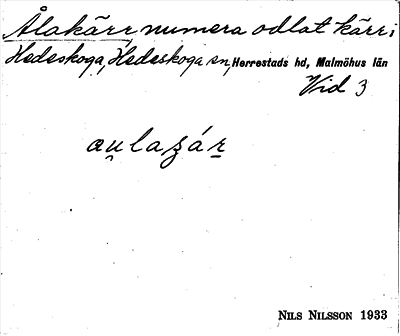 Ålakärr numera odlat kärr i
Hedeskoga, Hedeskoga sn, Herrestads hd, Malmöhus län
Vid 3
au̯lazár
NILS NILSSON 1933